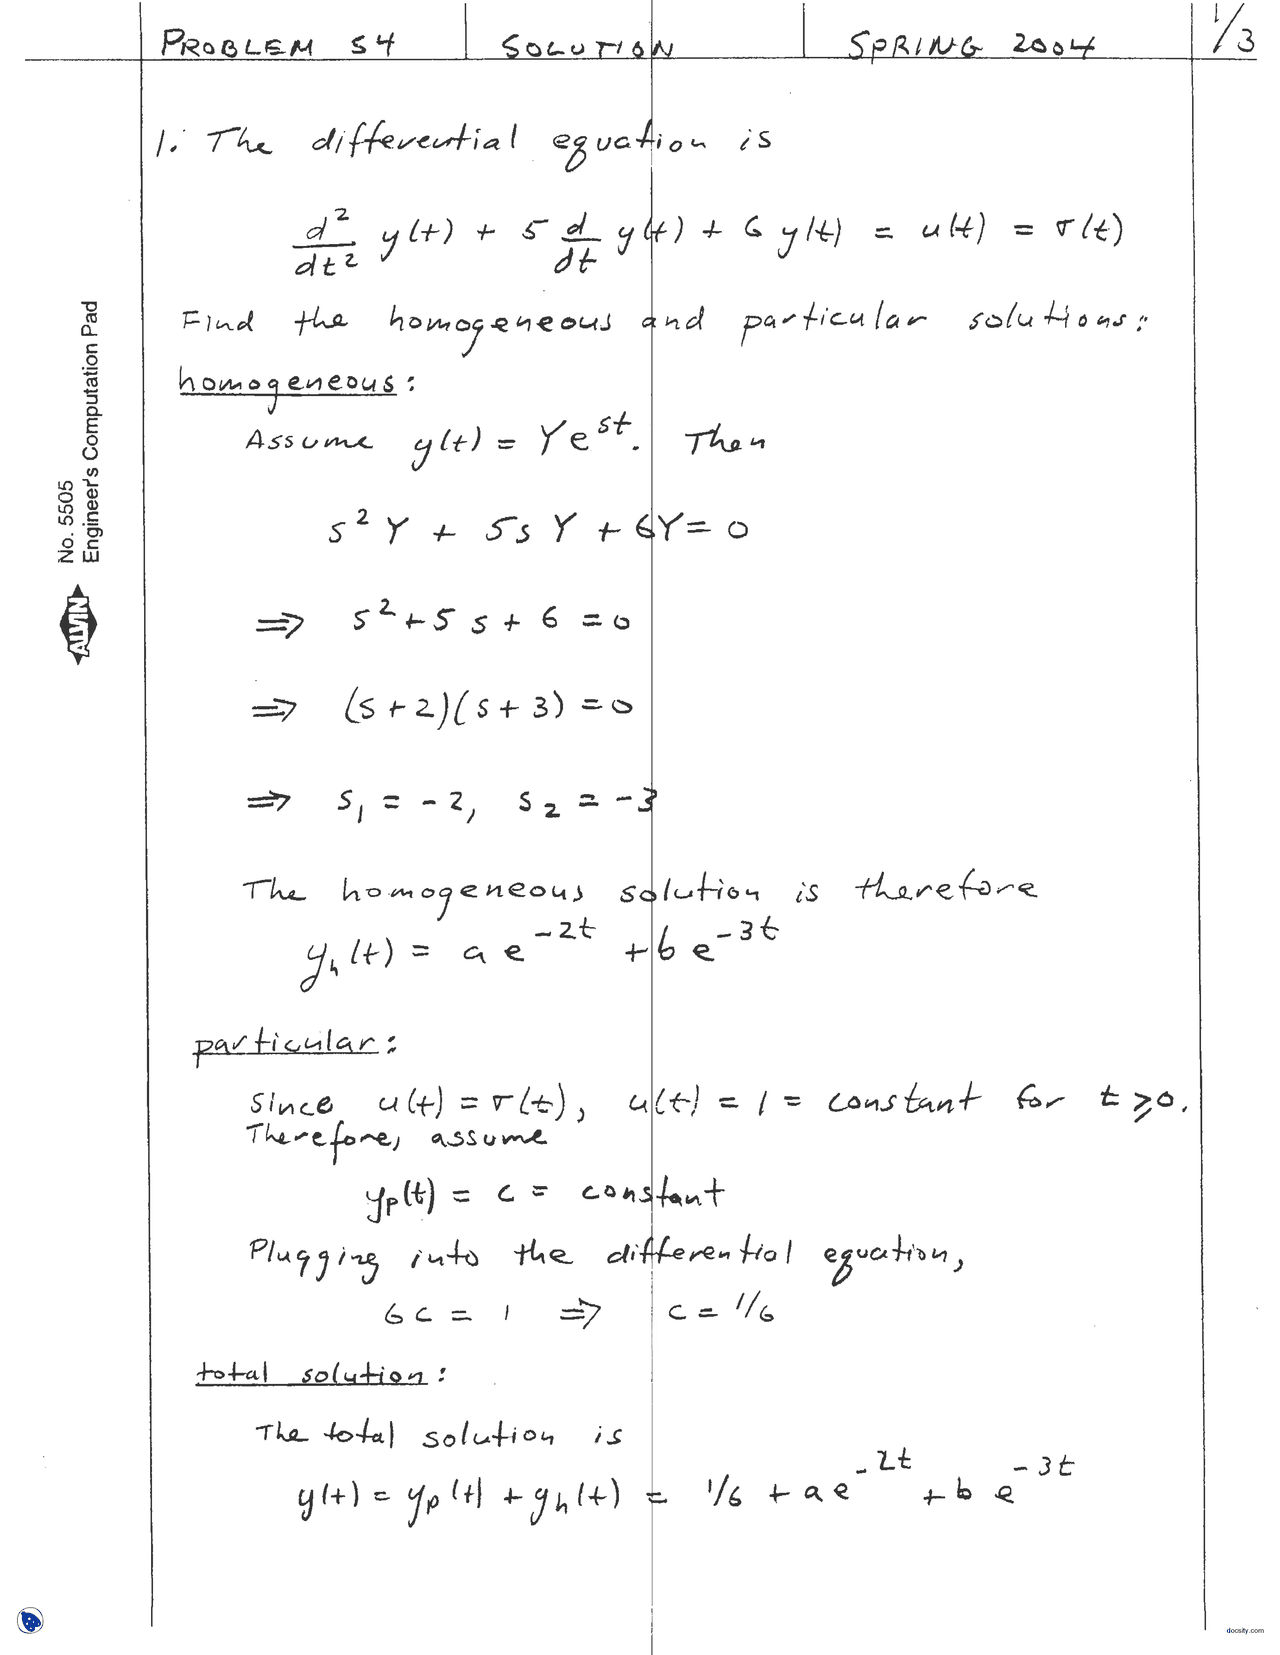 PROBLEM S4 SOLUTION SPRING 2004 1/3
1. The differential equation is
d²/dt² y(t) + 5 d/dt y(t) + 6 y(t) = u(t) = σ(t)
Find the homogeneous and particular solutions:
homogeneous:
Assume y(t) = Y e^{st}. Then
s² Y + 5s Y + 6Y = 0
⇒ s² + 5 s + 6 = 0
⇒ (s + 2)(s + 3) = 0
⇒ s₁ = -2, s₂ = -3
The homogeneous solution is therefore
y_h(t) = a e^{-2t} + b e^{-3t}
particular:
Since u(t) = σ(t), u(t) = 1 = constant for t ≥ 0.
Therefore, assume
y_p(t) = c = constant
Plugging into the differential equation,
6c = 1 ⇒ c = 1/6
total solution:
The total solution is
y(t) = y_p(t) + y_h(t) = 1/6 + a e^{-2t} + b e^{-3t}
No. 5505
Engineer's Computation Pad
ALVIN
docsity.com